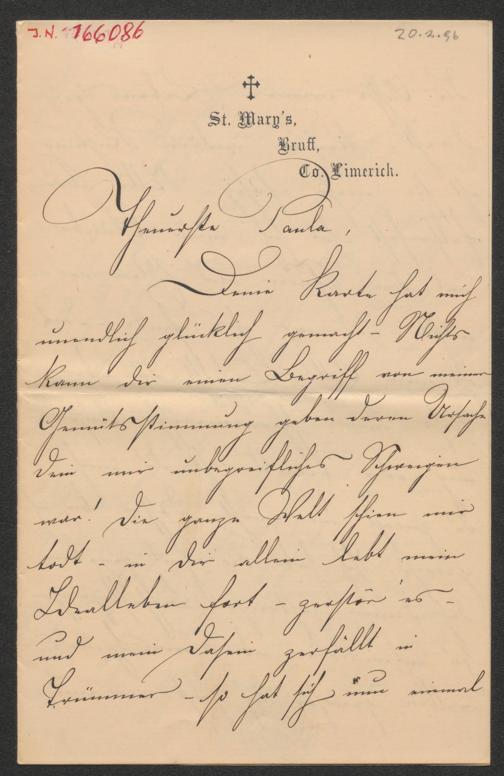 J.N. 166086
20.2.96
St. Mary's,
Bruff,
Co. Limerich.
Theuerste Paula,
Deine Karte hat mich
unendlich glücklich gemacht – Nichts
kann dir einen Begriff von meiner
Gemütsstimmung geben deren Ursache
dein mir unbegreifliches Schweigen
war! Die ganze Welt schien mir
todt – in Dir allein lebt mein
Idealleben fort – zerstör' es –
und mein Dasein zerfällt in
Trümmer – so hat sich nun einmal